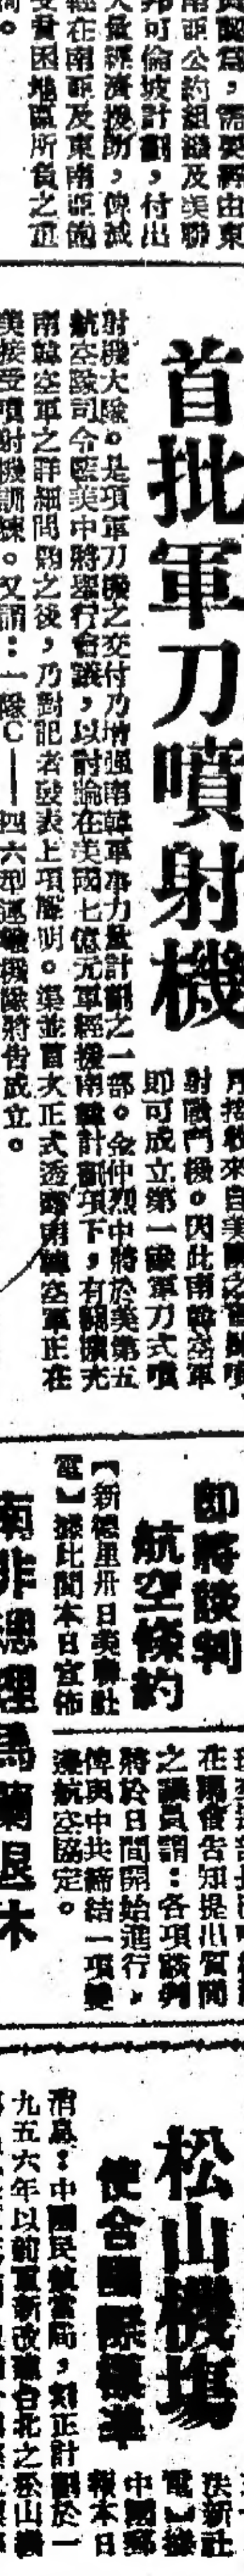 南亞公約組織及美聯
邦可倫坡計劃,付出
大量經濟援助,俾減
輕在南亞及東南亞飽
受貧困地區所負之重
荷。
首批軍刀噴射機
射戰鬥機。因此南韓空軍
即可成立第一隊軍刀式噴
射機大隊。是項軍刀機之交付乃增强南韓軍事力量計劃之一部。金仲烈中將於美第五
航空隊司令 中將舉行會議,以討論在美國七億元軍經援南韓計劃項下,有關擴充
南韓空軍之詳細問題之後,乃對記者發表上項聲明。渠並首次正式透露南韓空軍正在
美接受噴射機訓練。又謂:一隊C——四六型運輸機隊將告成立。
即將談判
航空條約
【新德里卅日美聯社
電】據此間本日宣佈
在議會告知提出質問
之議員謂:各項談判
將於日間開始進行,
俾與中共締結一項雙
邊航空協定。
南非總理馬蘭退休
松山機塲
使合國際標準
法新社
電】據
中國郵
報本日
消息:中國民航當局,刻正計劃於一
九五六年以前重新改建台北之松山機